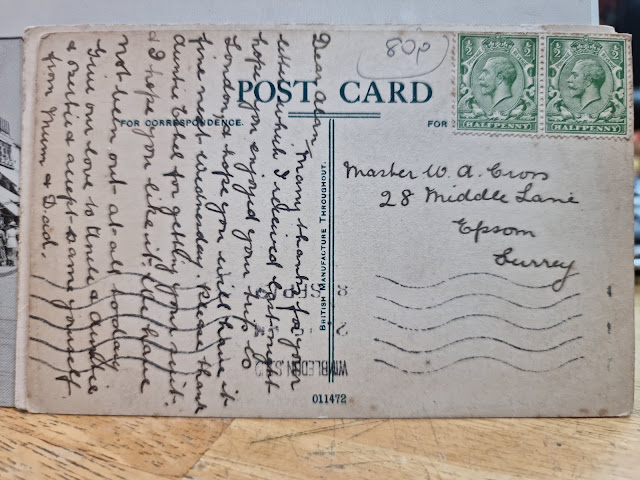 80p
POST CARD
FOR CORRESPONDENCE.
FOR
HALFPENNY
HALFPENNY
BRITISH MANUFACTURE THROUGHOUT.
Master W. A. Cross
28 Middle Lane
Epsom
Surrey
Dear Alan, Many thanks for your
letter which I recieved last night
hope you enjoyed your trip to
London, & hope you will have it
fine next Wednesday. Please thank
Auntie Ethel for getting your suit.
& I hope you like it. We have
not been out at all today
Give our love to Uncle & Auntie
& accept same yourself
from Mum & Dad.
WIMBLEDON. S.W.
011472